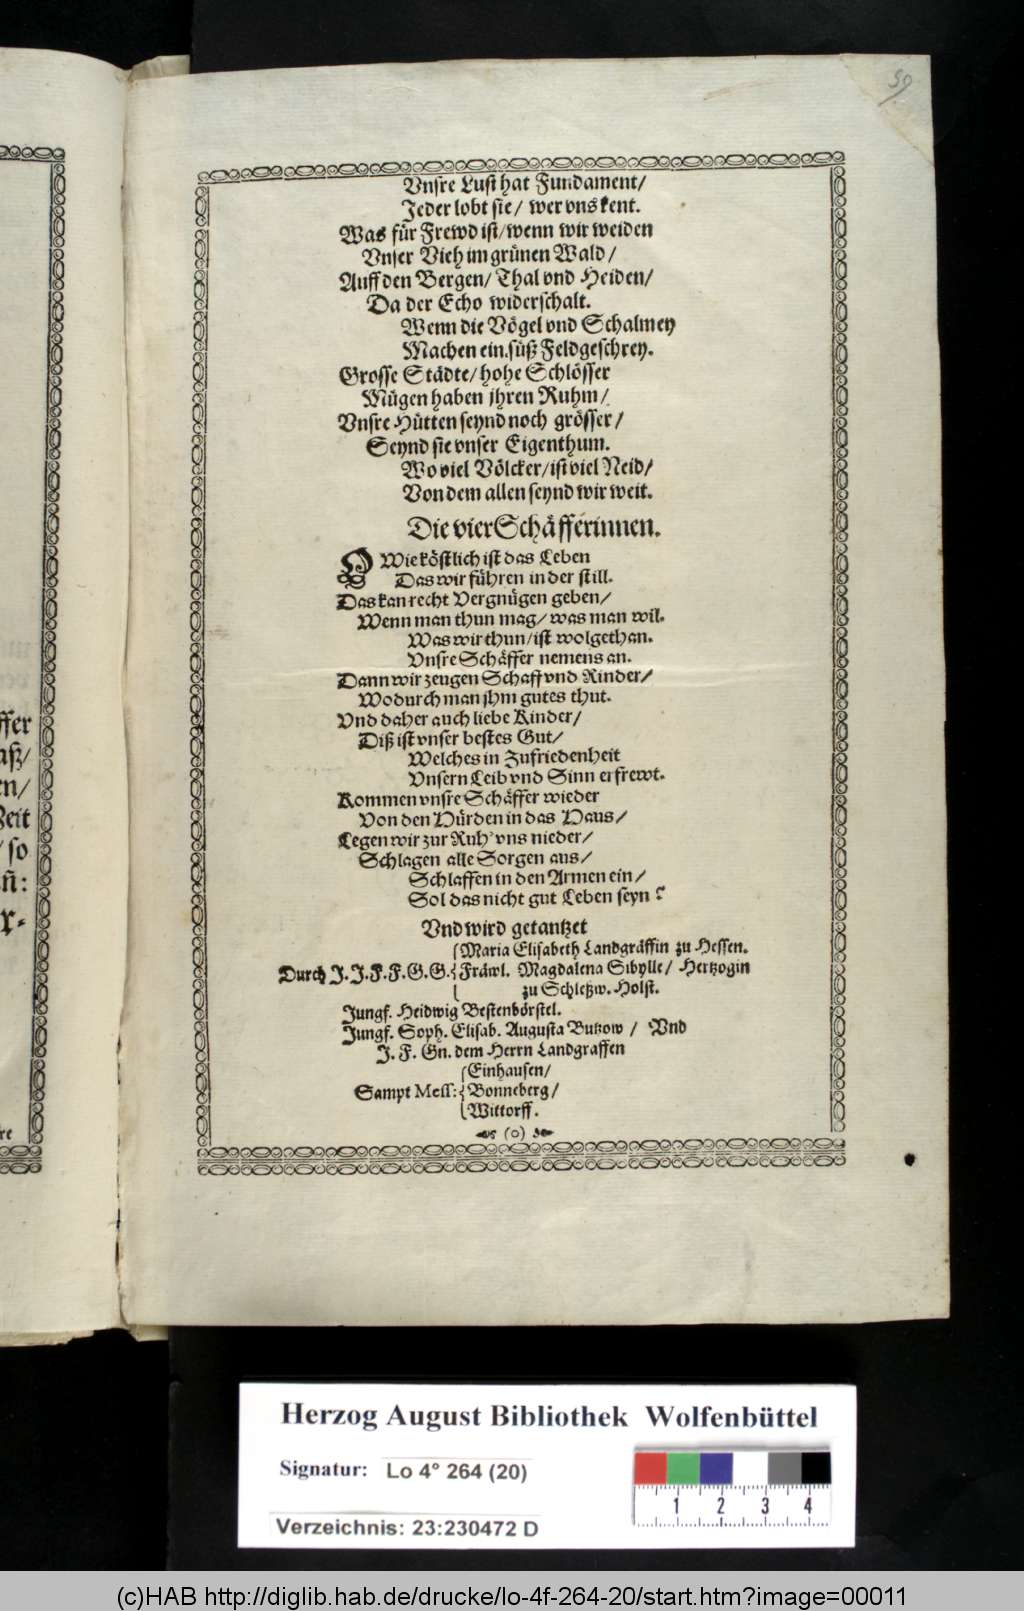 59
Vnsre Lust hat Fundament/
Jeder lobt sie/ wer vns kent.
Was für Frewd ist/ wenn wir weiden
Vnser Vieh im grünen Wald/
Auff den Bergen/ Thal vnd Heiden/
Da der Echo widerschalt.
Wenn die Vögel vnd Schalmey
Machen ein süß Feldgeschrey.
Grosse Städte/ hohe Schlösser
Mügen haben jhren Ruhm/
Vnsre Hütten seynd noch grösser/
Seynd sie vnser Eigenthum.
Wo viel Völcker/ ist viel Neid/
Von dem allen seynd wir weit.
Die vier Schäfferinnen.
O Wie köstlich ist das Leben
Das wir führen in der still.
Das kan recht Vergnügen geben/
Wenn man thun mag/ was man wil.
Was wir thun/ ist wolgethan.
Vnsre Schäffer nemens an.
Dann wir zeugen Schaff vnd Rinder/
Wodurch man jhm gutes thut.
Vnd daher auch liebe Kinder/
Diß ist vnser bestes Gut/
Welches in Zufriedenheit
Vnsern Leib vnd Sinn erfrewt.
Kommen vnsre Schäffer wieder
Von den Hürden in das Haus/
Legen wir zur Ruh' vns nieder/
Schlagen alle Sorgen aus/
Schlaffen in den Armen ein/
Sol das nicht gut Leben seyn?
Vnd wird getantzet
Maria Elisabeth Landgräffin zu Hessen.
Durch J. J. F. F. G. G. Fräwl. Magdalena Sibylle/ Hertzogin
zu Schleßw. Holst.
Jungf. Heidwig Bestenbörstel.
Jungf. Soph. Elisab. Augusta Butzow / Vnd
J. F. Gn. dem Herrn Landgraffen
Einhausen/
Sampt Mess: Bonneberg/
Wittorff.
(o)
ffer
aß/
en/
Zeit
/ so
añ:
x-
re
Herzog August Bibliothek Wolfenbüttel
Signatur: Lo 4° 264 (20)
1 2 3 4
Verzeichnis: 23:230472 D
(c)HAB http://diglib.hab.de/drucke/lo-4f-264-20/start.htm?image=00011